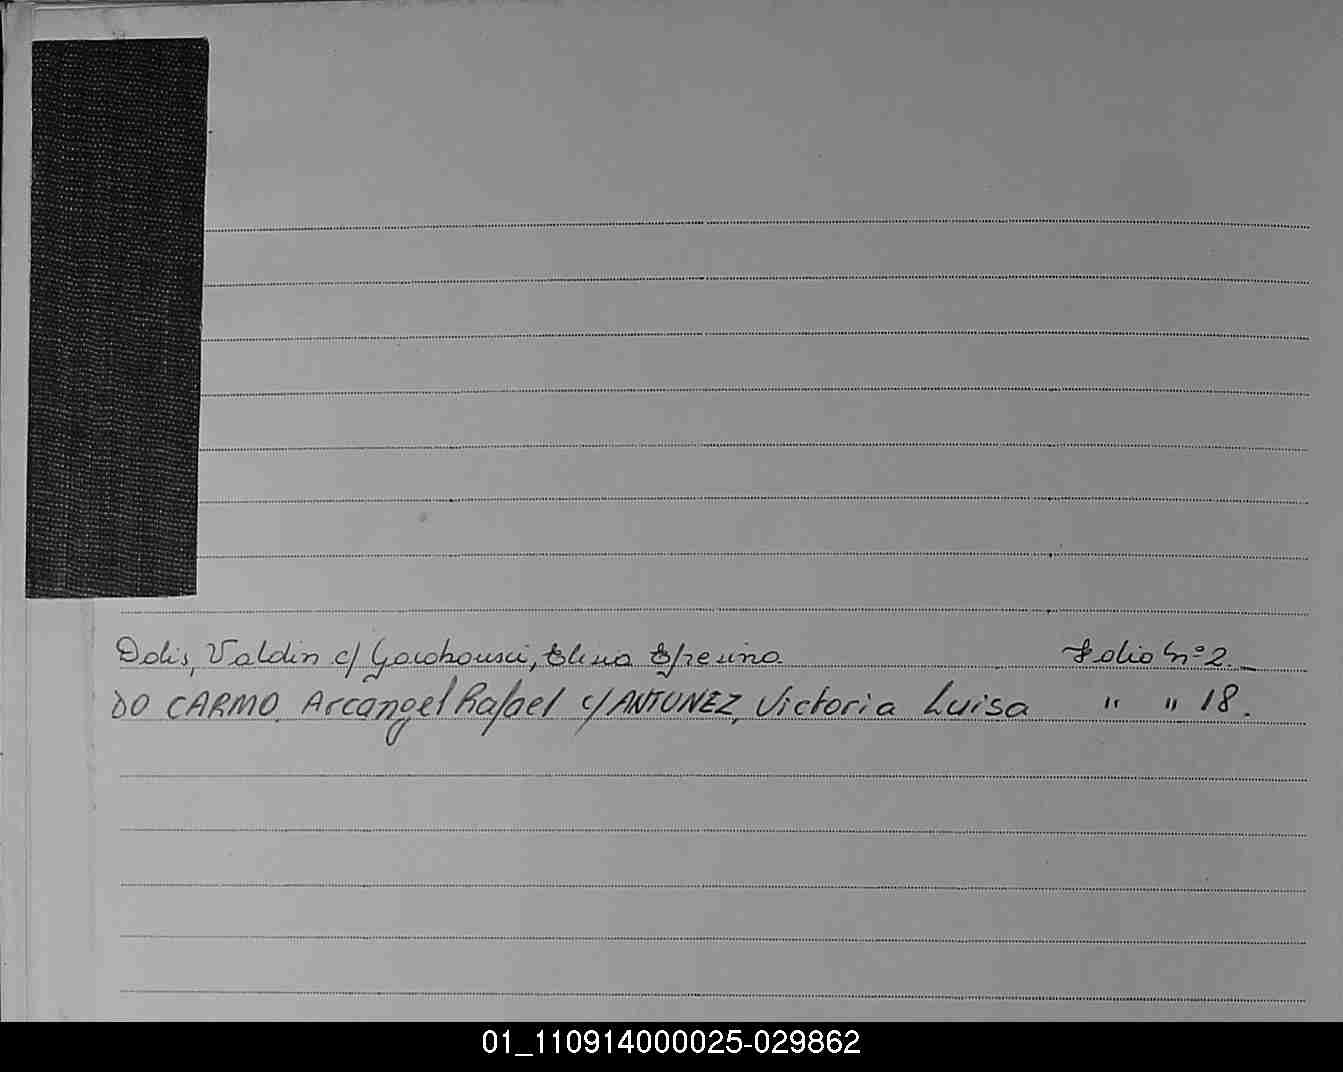 Dolis, Valdin c/ Gorohousci, Elena Efresina Folio Nº 2._
DO CARMO, Arcangel Rafael c/ ANTUNEZ, Victoria Luisa " " 18.
01_110914000025-029862